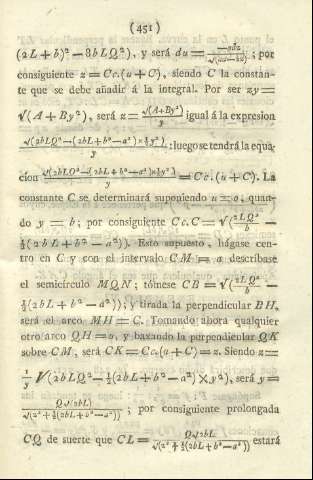 (451)
(2L + b)² — 8bLQ²), y será du = —adz / √(aa — zz) ; por
consiguiente z = Cc.(u + C), siendo C la constan-
te que se debe añadir á la integral. Por ser zy =
√(A + By²), será z = √(A + By²) / y igual á la expresion
√(2bLQ² — (2bL + b² — a²) × ½y²) / y : luego se tendrá la equa-
cion √(2bLQ² — (2bL + b² — a²) × ½y²) / y = Cc.(u + C). La
constante C se determinará suponiendo u = 0; quan-
do y = b; por consiguiente Cc.C = √(2LQ² / b —
½(2bL + b² — a²)). Esto supuesto, hágase cen-
tro en C y con el intervalo CM = a describase
el semicírculo MQN; tómese CB = √(2LQ² / b —
½(2bL + b² — a²)); y tirada la perpendicular BH,
será el arco MH = C. Tomando ahora qualquier
otro arco QH = u, y baxando la perpendicular QK
sobre CM, será CK = Cc.(u + C) = z. Siendo z =
1/y √(2bLQ² — ½(2bL + b² — a²) × y²), será y =
Q√(2bL) / √(z² + ½(2bL + b² — a²)) ; por consiguiente prolongada
CQ de suerte que CL = Q√2bL / √(z² + ½(2bL + b² — a²)) estará